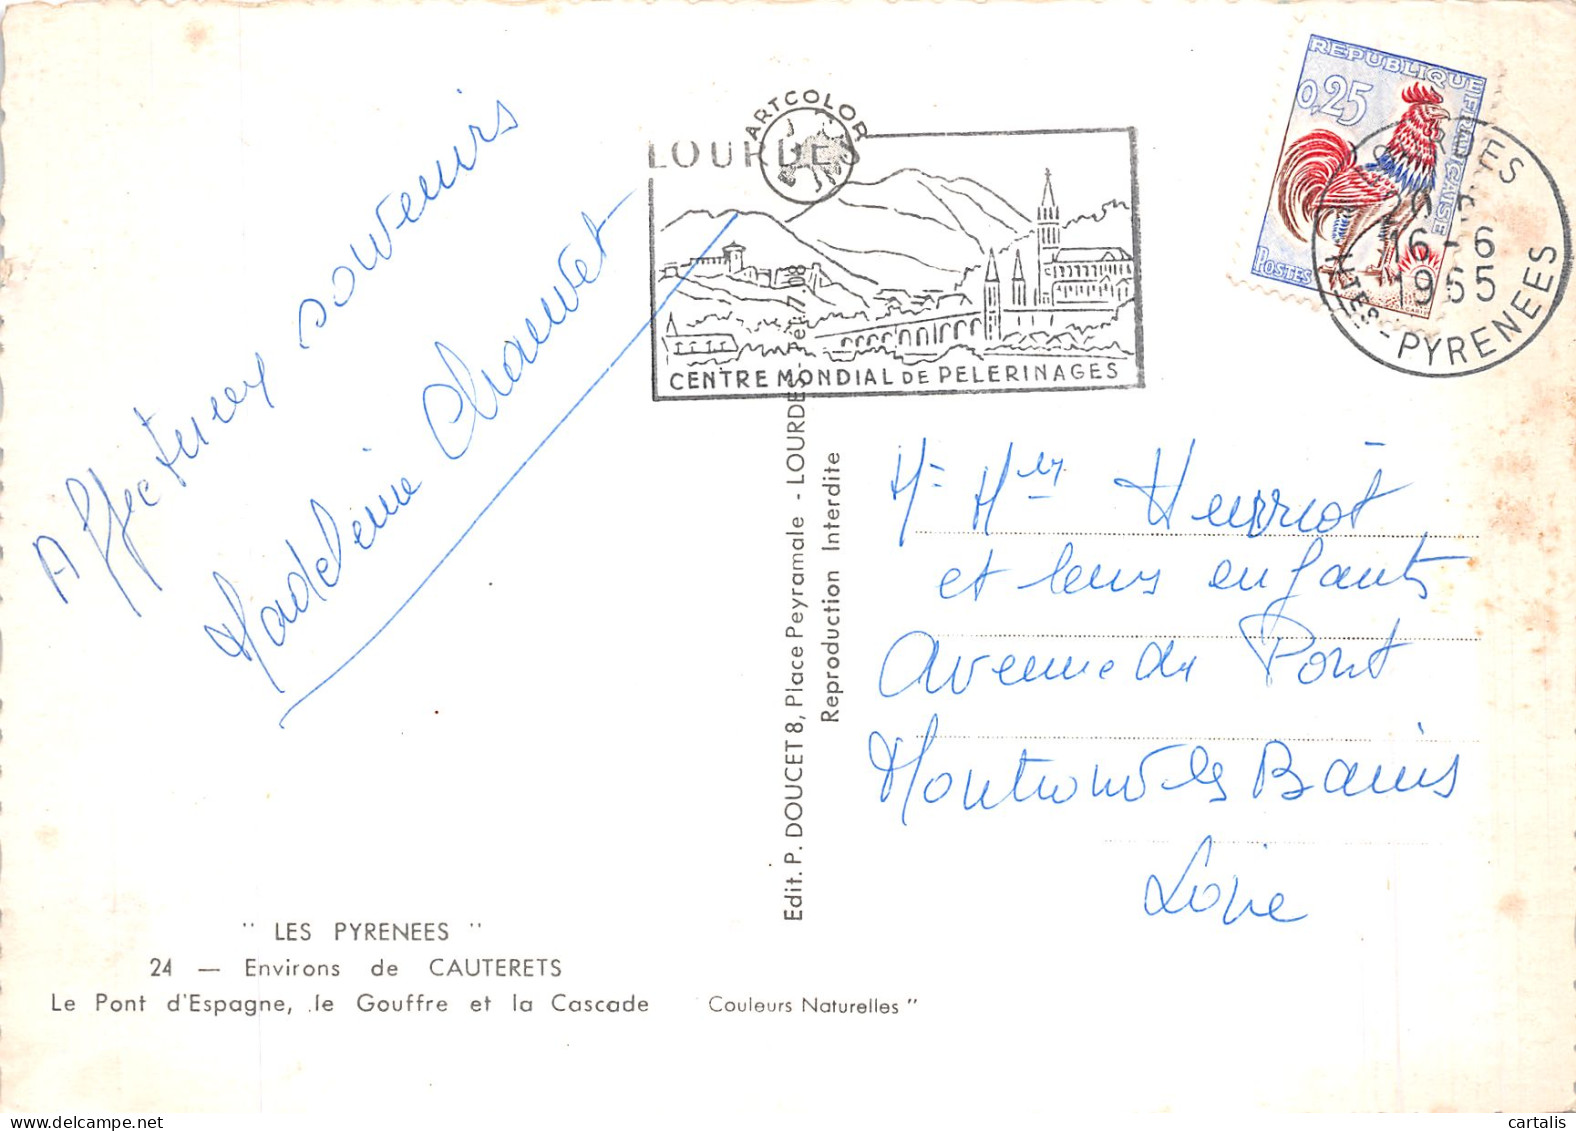 Affectueux souvenirs
Madeleine Chauvet
" LES PYRENEES "
24 — Environs de CAUTERETS
Le Pont d'Espagne, le Gouffre et la Cascade
Couleurs Naturelles "
Edit. P. DOUCET 8, Place Peyramale - LOURDES - Tél. 7.08
Reproduction Interdite
ARTCOLOR
LOURDES
CENTRE MONDIAL DE PELERINAGES
REPUBLIQUE FRANÇAISE
0,25
POSTES
LOURDES
16-6
1965
HTES-PYRENEES
Mr Mme Henriot
et leurs enfants
Avenue du Pont
Montrond les Bains
Loire
cartalis